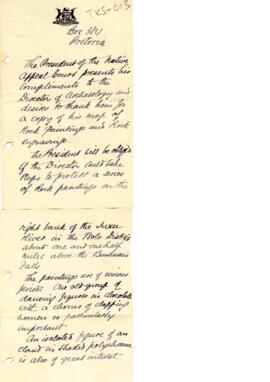 TKS-013
Box 384
Pretoria
The President of the Native
Appeal Court presents his
complements to the
Director of Archaeology and
desires to thank him for
a copy of his map of
Rock Paintings and Rock
engravings.
The President will be obliged
if the Director could take
steps to protect a series
of Rock paintings on the
right bank of the
River in the District
about one and one half
miles above the
Falls
The paintings are of various
periods. One old group of
dancing figures in chocolate
with a chorus of clapping
women is particularly
important.
An isolated figure of an
eland in shaded polychrome
is also of great interest